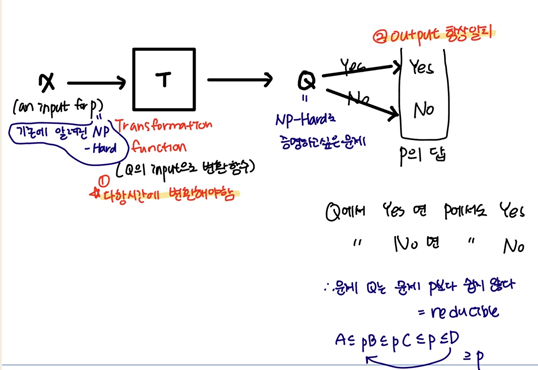 ② Output 항상일치
X
T
Q
Yes
No
Yes
No
(an input for p)
"
기존에 알려진 NP
-Hard
Transformation
function
(Q의 input으로 변환함수)
①
☆다항시간에 변환해야함
"
NP-Hard로
증명하고싶은문제
P의 답
Q에서 Yes 면 P에서도 Yes
" No 면 " No
∴문제 Q는 문제 P보다 쉽지 않다
= reducable
A≤pB≤pC≤p≤D
≥p